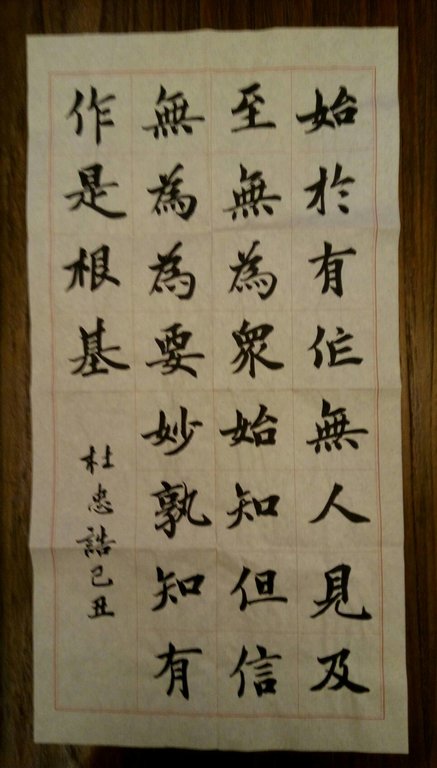 始於有作無人見及
至無為眾始知但信
無為為要妙孰知有
作是根基
杜忠誥己丑